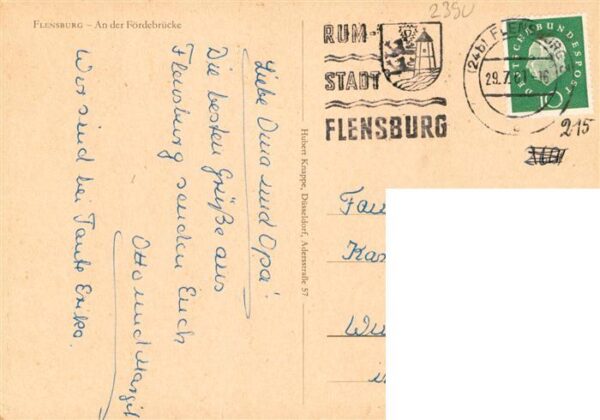 FLENSBURG – An der Fördebrücke
Liebe Oma und Opa!
Die besten Grüße aus
Flensburg senden Euch
Otto und Margit
Wir sind bei Tante Erika.
Hubert Knappe, Düsseldorf, Adersstraße 57
2390
RUM-
STADT
FLENSBURG
(24b) FLENSBURG
29.7.61-16
DEUTSCHE BUNDESPOST
10
215
Fam
Kar
Wu